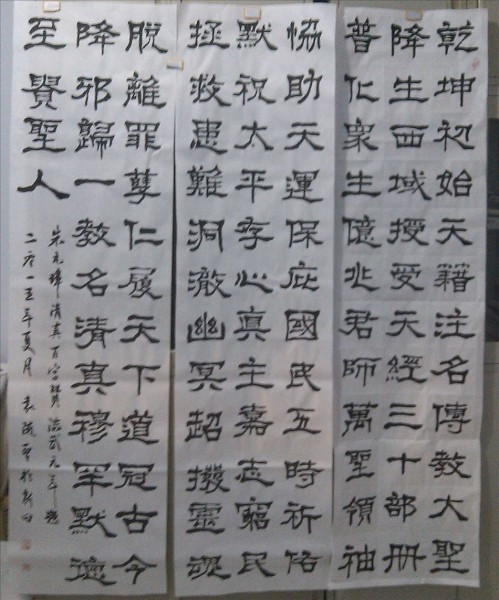 乾坤初始天籍注名傳教大聖
降生西域授受天經三十部冊
普化衆生億兆君師萬聖領袖
恊助天運保庇國民五時祈佑
默祝太平存心真主嘉志窮民
拯救患難洞澈幽冥超撥靈魂
脫離罪孽仁履天下道冠古今
降邪歸一教名清真穆罕默德
至貴聖人
朱元璋清真百字贊洪武元年題
二零一五年夏月袁